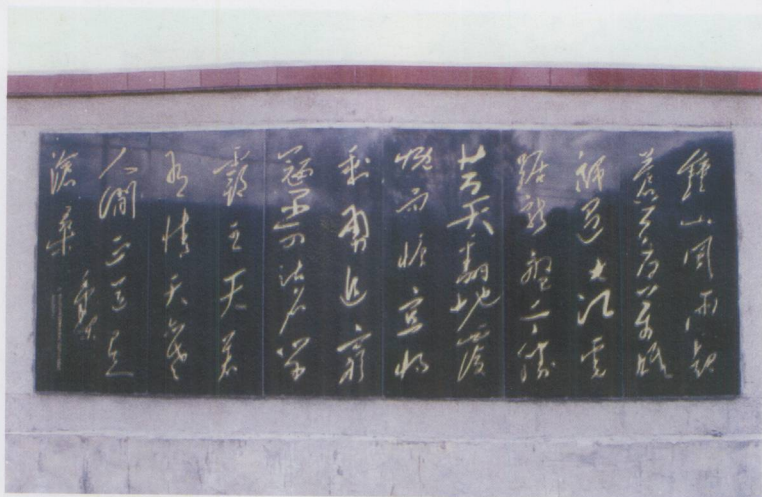 鍾山風雨起
蒼黃百萬雄
師過大江虎
踞龍盤今勝
昔天翻地覆
慨而慷宜將
剩勇追窮
寇不可沽名學
霸王天若
有情天亦老
人間正道是
滄桑